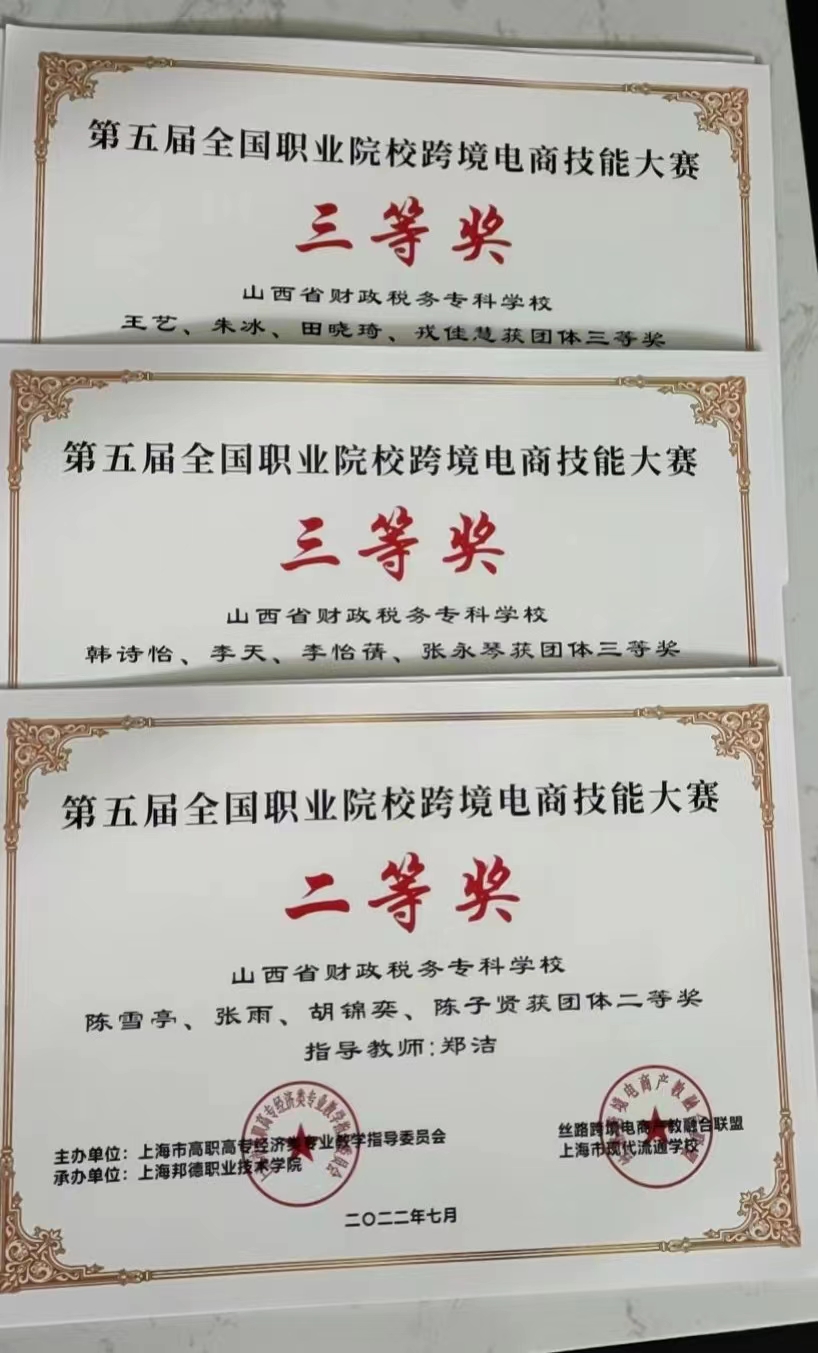 第五届全国职业院校跨境电商技能大赛
三等奖
山西省财政税务专科学校
王艺、朱冰、田晓琦、戎佳慧获团体三等奖
第五届全国职业院校跨境电商技能大赛
三等奖
山西省财政税务专科学校
韩诗怡、李天、李怡蒨、张永琴获团体三等奖
第五届全国职业院校跨境电商技能大赛
二等奖
山西省财政税务专科学校
陈雪亭、张雨、胡锦奕、陈子贤获团体二等奖
指导教师:郑洁
主办单位：上海市高职高专经济类专业教学指导委员会
丝路跨境电商产教融合联盟
承办单位：上海邦德职业技术学院
上海市现代流通学校
二〇二二年七月